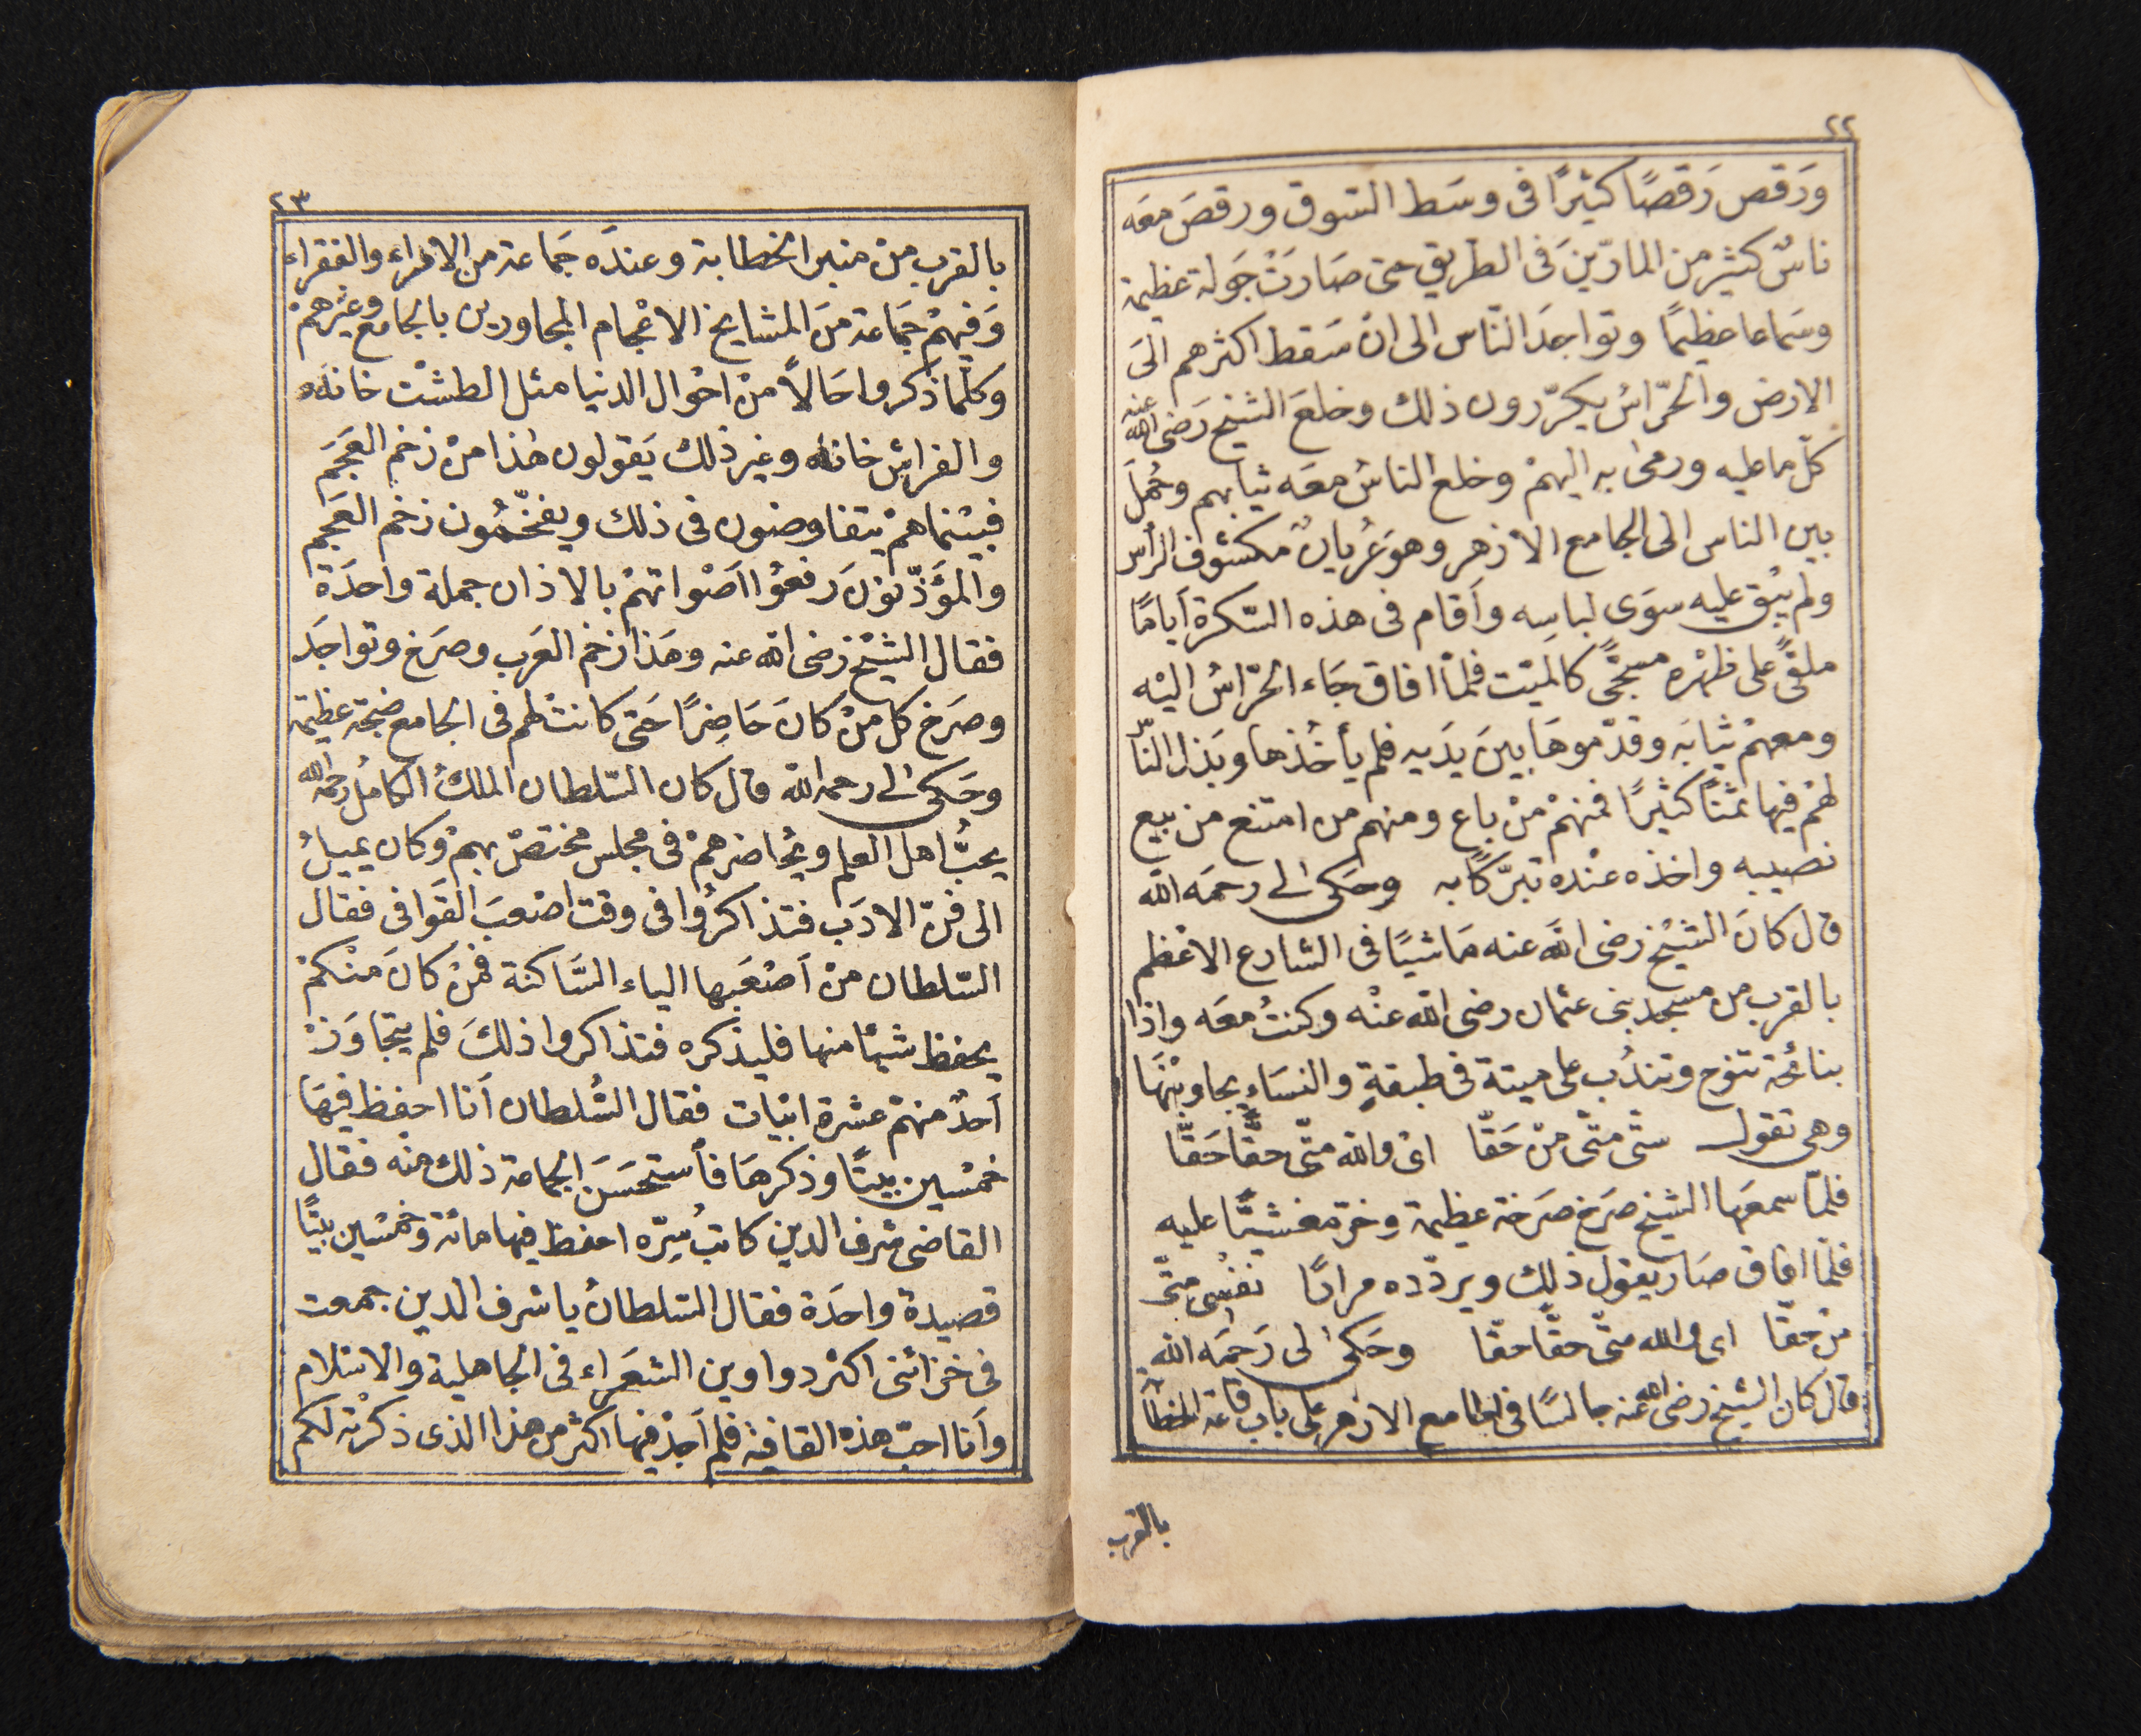 ٢٢
ورَقص رَقصًا كثيرًا فى وسَط السّوق ورقصَ معَه
ناسٌ كثير من المارّينَ فى الطريق حتى صَارَتْ جَولة عظيمة
وسَماعا عظيمًا وتواجدَ النّاس الى ان سَقط اكثرهم الَى
الارض والحرّاسُ يكرّرون ذلك وخلعَ الشيخ رَضى الله عنه
كلّ ما عليه ورمى به اليهمْ وخلع الناسُ معَه ثيابهم وحُملَ
بين الناس الى الجامع الازهر وهوَ عُريانٌ مكشوف الرأس
ولم يبْق عليه سوَى لباسِه وأقام فى هذه السّكرة أيامًا
ملقًى على ظهْره مسجًّى كالميّت فلمّا افاق جَاء الحرّاسُ اليْه
ومعهمْ ثيابَه وقدّموهَا بينَ يدَيه فلم يأخُذها وبَذل النّا
لهُمْ فيها ثمنًا كثيرًا فمنهمْ منْ باع ومنهم من امتنع من بيع
نصيبه واخذه عنْده تبرّكًا به وحَكى لى رحمَه الله
قال كانَ الشيْخ رضى الله عنه مَاشيًا فى الشارع الاعْظم
بالقرب من مسجد بنى عثمان رضى الله عنْه وكنتُ معَه واذا
بنائحة تنوح وتندُب على ميتة فى طبقةٍ والنسَاء يجاوبْنَها
وهى تقول ستّى متّى منْ حَقّا اىْ والله متّى حقًّا حَقًّا
فلمّا سمعَها الشيخ صَرخ صَرخة عظيمة وخرّ مغشيًّا عليه
فلمّا افاق صَار يقول ذلك ويردّده مرارًا نفسُى متّى
منْ حقّا اى والله متّى حقًّا حقًّا وحَكى لى رَحمَه الله
قال كان الشيخ رضى الله عنه جالسًا فى الجامع الازهر على باب قاعة الخطا
بالقرب
٢٣
بالقرب منْ منبر الخطابة وعندَه جَماعة من الامراء والفقراء
وَفيهمْ جَمَاعة منَ المشايخ الاعْجام المجاورين بالجامع وغيْرهمْ
وكلّما ذكروا حَالاً منْ احْوال الدنيا مثل الطشْت خانه
والفراش خانه وغير ذلك يَقولون هٰذا منْ زخم العَجَم
فبيْنما همْ يتفاوضون فى ذلك ويفخّمُون زخم العَجم
والمؤَذّنونَ رفعُوا اَصْواتهمْ بالاذان جملة واحدَة
فقال الشيْخ رَضى الله عنه وهَذا زخم العَرب وصرَخ وتواجَد
وصرَخ كل منْ كانَ حَاضِرًا حَتى كانتْ لهم فى الجامع ضجة عظيمة
وحَكى لى رحمه الله قال كان السّلطان الملكُ الكاملُ رحمه الله
يحبُّ اهل العلم ويحُاضرهمْ فى مجلس مختصّ بهمْ وكان يميلُ
الى فنّ الادَب فتذاكرُوا فى وقت اصْعبَ القَوافى فقال
السّلطان منْ اَصْعَبها الياء السَّاكنة فمنْ كانَ منْكمْ
يحفظ شيئا منها فليذكره فتذاكروا ذلكَ فلم يتجاوَزْ
اَحدٌ منهمْ عشرة ابيْات فقال السُّلطان اَنا احفظ فيهَا
خمْسين بيتًا وذكرهَا فأستحسَنَ الجماعة ذلك منْه فقال
القاضى شرف الدين كاتبُ سِرّه احفظ فيها مائة وخمْسين بيتًا
قصيدة واحدَة فقال السّلطانُ يا شرف الدين جمعت
فى خزائنى اكثر دواوين الشعَراء فى الجاهلية والاسْلام
وأنا احبّ هذه القافية فلم اَجدْ فيها اكثر من هذا الذى ذكرْته لكم